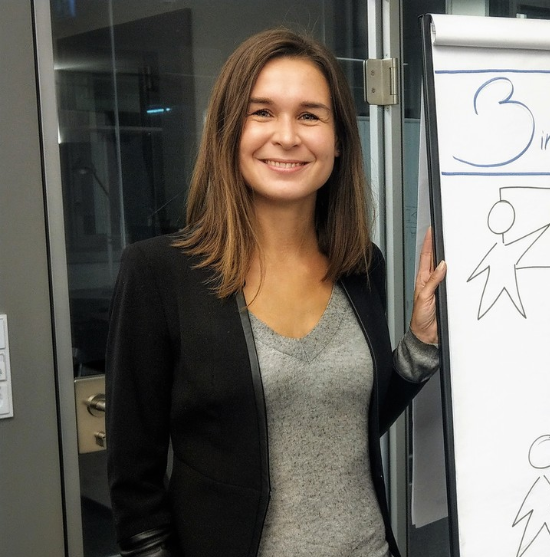 3 in